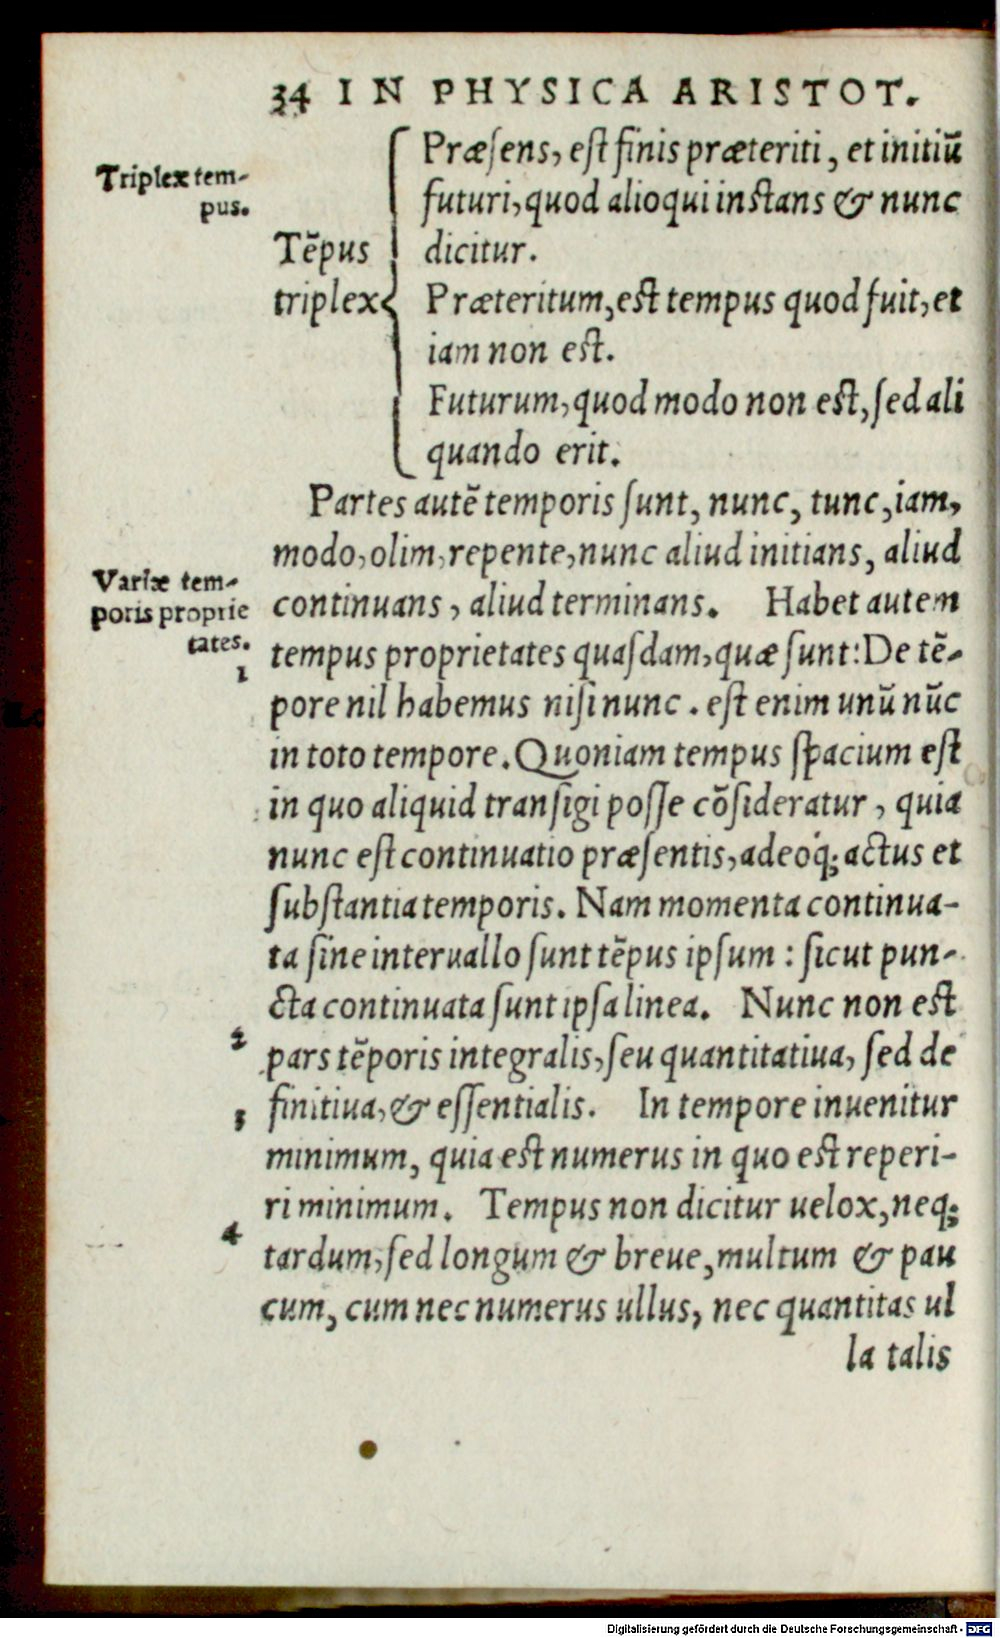 34 IN PHYSICA ARISTOT.
Triplex tem-
pus.
Tẽpus
triplex
Præsens, est finis præteriti, et initiũ
futuri, quod alioqui instans & nunc
dicitur.
Præteritum, est tempus quod fuit, et
iam non est.
Futurum, quod modo non est, sed ali
quando erit.
Partes autẽ temporis sunt, nunc, tunc, iam,
modo, olim, repente, nunc aliud initians, aliud
Variæ tem-
poris proprie
tates.
1
continuans, aliud terminans. Habet autem
tempus proprietates quasdam, quæ sunt: De tẽ-
pore nil habemus nisi nunc. est enim unũ nũc
in toto tempore. Quoniam tempus spacium est
in quo aliquid transigi posse cõsideratur, quia
nunc est continuatio præsentis, adeoq́; actus et
substantia temporis. Nam momenta continua-
ta sine interuallo sunt tẽpus ipsum: sicut pun-
cta continuata sunt ipsa linea. Nunc non est
2
pars tẽporis integralis, seu quantitatiua, sed de
3
finitiua, & essentialis. In tempore inuenitur
minimum, quia est numerus in quo est reperi-
ri minimum. Tempus non dicitur uelox, neq;
4
tardum, sed longum & breue, multum & pau
cum, cum nec numerus ullus, nec quantitas ul
la talis
Digitalisierung gefördert durch die Deutsche Forschungsgemeinschaft - DFG